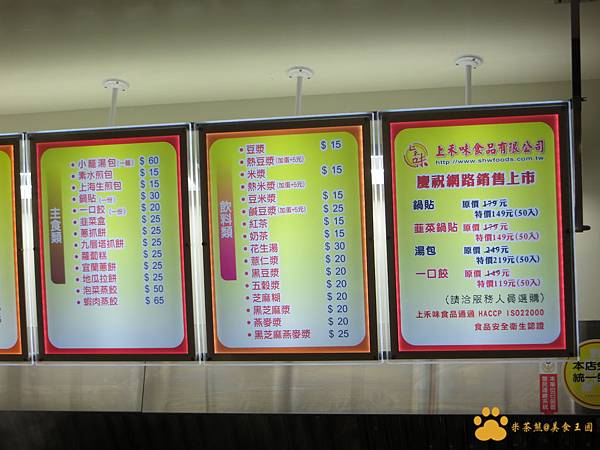 主食類
小籠湯包(一籠) $ 60
素水煎包 $ 15
上海生煎包 $ 15
鍋貼(一份) $ 30
一口餃(一份) $ 20
韭菜盒 $ 25
蔥抓餅 $ 25
九層塔抓餅 $ 25
蘿蔔糕 $ 25
宜蘭蔥餅 $ 25
地瓜拉餅 $ 25
泡菜蒸餃 $ 50
蝦肉蒸餃 $ 65
飲料類
豆漿 $ 15
熱豆漿(加蛋+5元)
米漿 $ 15
熱米漿(加蛋+5元)
豆米漿 $ 15
鹹豆漿(加蛋+5元) $ 25
紅茶 $ 15
奶茶 $ 15
花生湯 $ 30
薏仁漿 $ 20
黑豆漿 $ 20
五穀漿 $ 20
芝麻糊 $ 20
黑芝麻漿 $ 20
燕麥漿 $ 20
黑芝麻燕麥漿 $ 25
上禾味食品有限公司
http://www.shwfoods.com.tw
慶祝網路銷售上市
鍋貼 原價 179元
特價149元(50入)
韭菜鍋貼 原價 179元
特價149元(50入)
湯包 原價 249元
特價219元(50入)
一口餃 原價 149元
特價119元(50入)
(請洽服務人員選購)
上禾味食品通過 HACCP ISO22000
食品安全衛生認證
本店
統一
米茶熊@美食王國